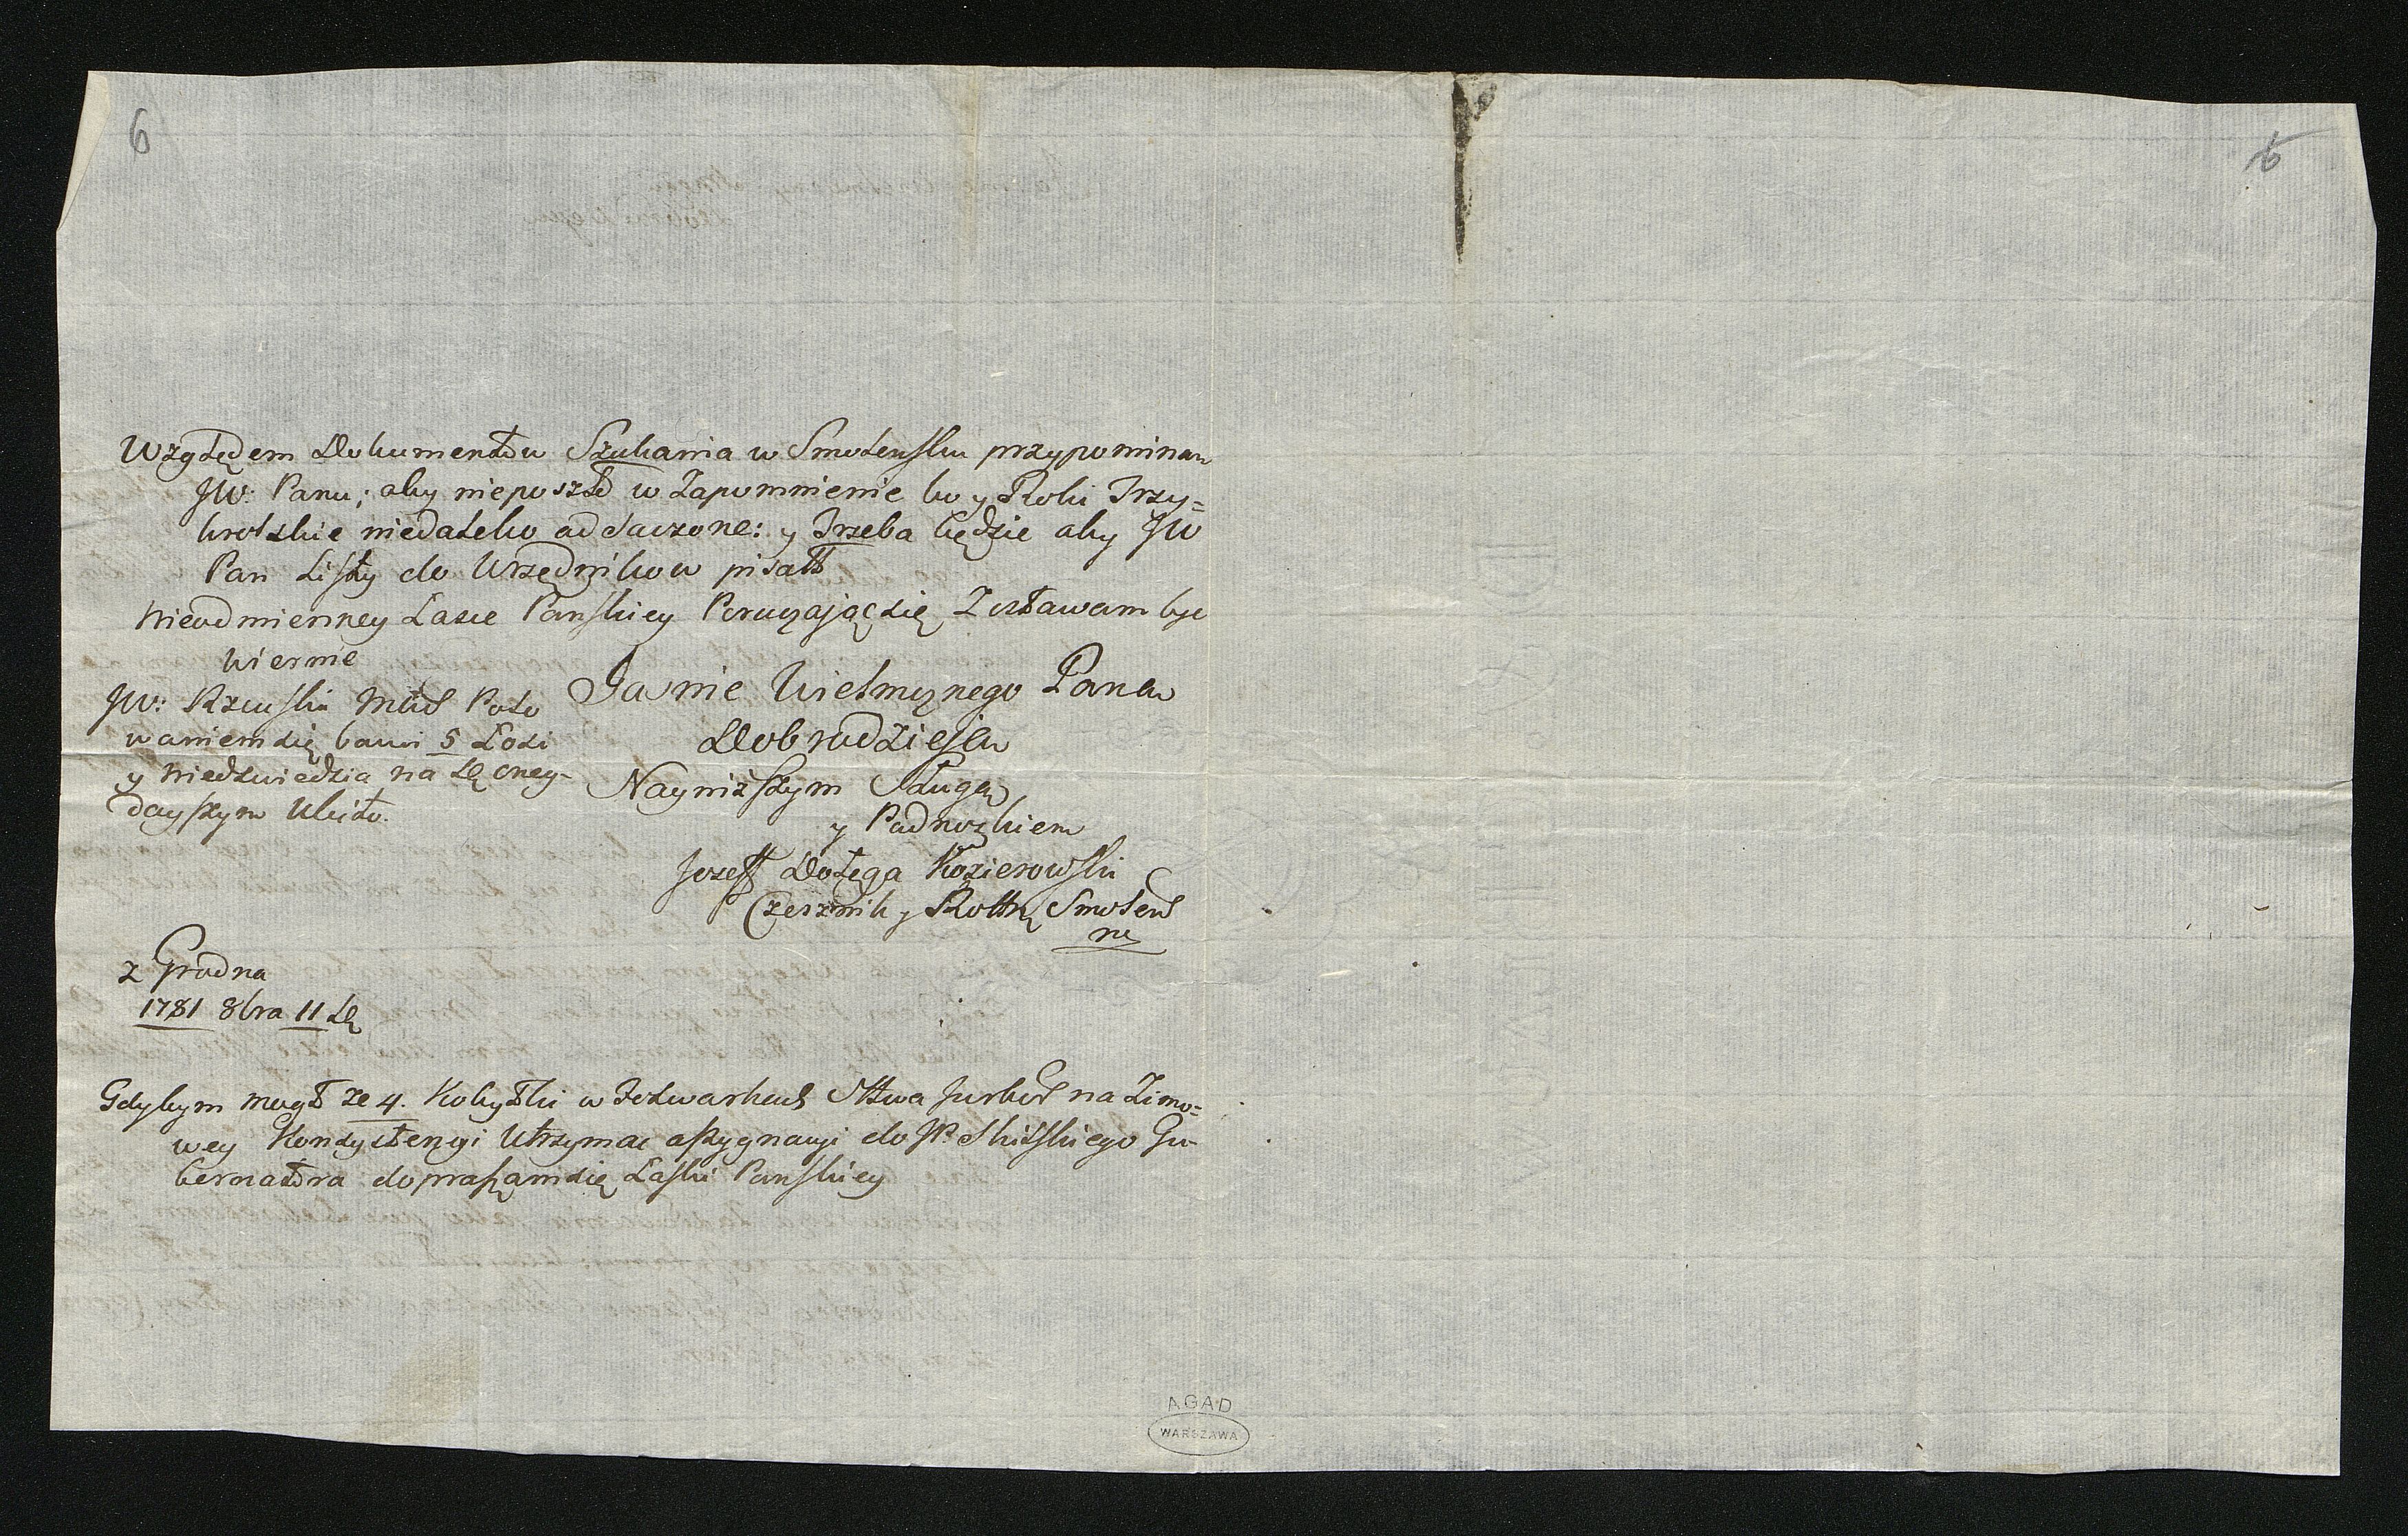 6
6
Względem Dokumentow Szukania w Smolensku przypominam
JW: Panu; aby nieposzło w Zapomnienie bo y Roki Trzy=
krolskie niedaleko odsaczone: y Trzeba będzie aby JW
Pan Listy do Urzędnikow pisałł
Nieodmienney Łasce Panskiey Poruczającsię Zostawam byc
Wiernie
JW: Rzewski Polo
waniemsię bawi 5 Łosi
y Niedzwiedzia na
dayszym Ubito.
Jasnie Wielmoznego Pana
Dobrodzieja
Naynizszym Sługą
y Podnozkiem
Jozeff Dołęga Kozierowski
Czesznik y Rottm Smolens
z Grodna
1781 8bra 11 d
Gdybym mogł ze 4. Kobyłki w Folwarkach Sttwa Jurbor na Zimo=
wey Konsystencyi Utrzymac assygnacyi do JP. Skilskiego Gu-
bernatora dopraszamsię Łaski Panskiey
AGAD
WARSZAWA